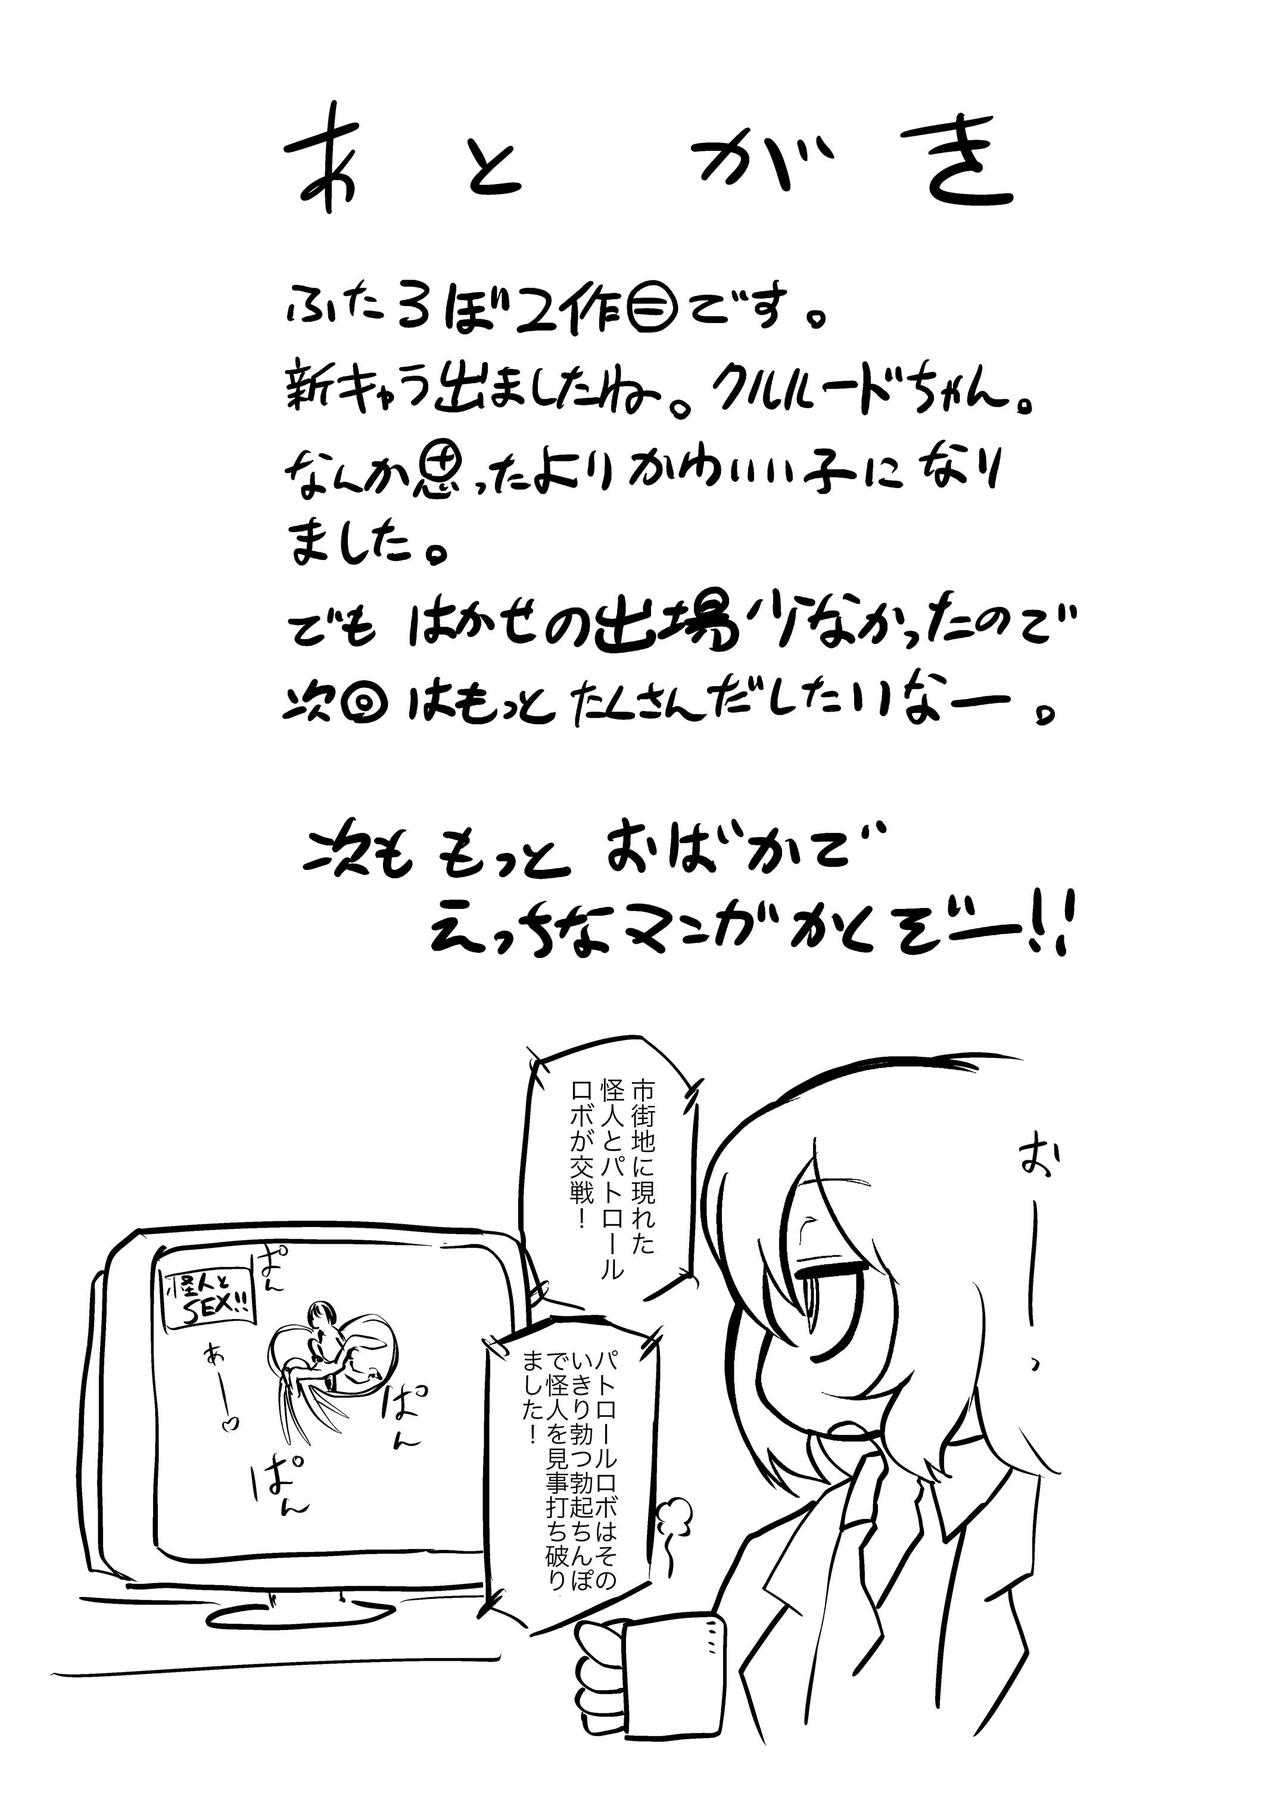 あとがき
ふたろぼ2作目です。
新キャラ出ましたね。クルルードちゃん。
なんか思ったよりかわいい子になり
ました。
でも はかせの出場少なかったので
次回はもっと たくさんだしたいなー。
次も もっと おばかで
えっちなマンガかくぞー!!
市街地に現れた
怪人とパトロール
ロボが交戦!
おーっ
パトロールロボはその
いきり勃つ勃起ちんぽ
で怪人を見事打ち破り
ました!
怪人と
SEX!!
ぱん
あー♡
ぱん
ぱん